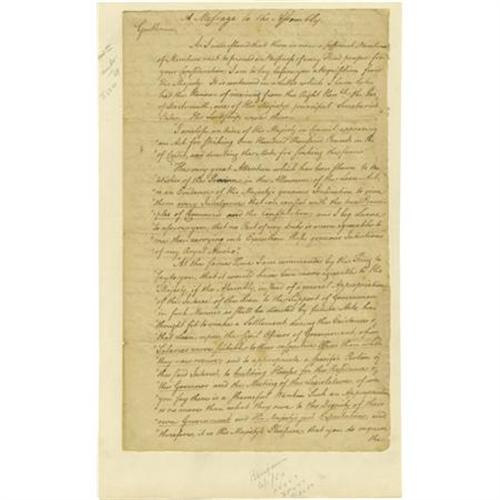 A Message to the Assembly.
Gentlemen,
As I understand that there is now a sufficient Number
of Members met to proceed on Business of every Kind proper for
your Consideration, I am to lay before you a Requisition from
His Majesty. It is contained in a Letter which I have lately
had the Honour of receiving from the Right Honble the Earl
of Dartmouth, one of His Majesty's principal Secretaries
State. His Lordship's words are
I enclose an Order of His Majesty in Council approving
an Act for striking One Hundred Thousand Pounds in
of Credit, and directing the Mode for sinking the same
The very great Attention which has been shewn to the
Wishes of the Province, in the Allowance of the above Act,
is an Evidence of His Majesty's gracious Inclination to give
them every Indulgence that can consist with the true
ples of Commerce and the Constitution; and I beg leave
to assure you, that no Part of my Duty is more agreeable to
me than carrying into Execution these gracious Intentions
of my Royal Master.
At the same Time I am commanded by the King to
say to you, that it would have been more agreeable to His
Majesty, if the Assembly, instead of a general Appropriation
of the Interest of the Loan to the Support of Government
in such Manner as shall be directed by future Acts, had
thought fit to make a Settlement during the Existence of
that Loan, upon the Civil Officers of Government, of
Salaries more suitable to their respective Offices than what
they now receive; and to appropriate a specific Portion of
the said Interest, to building Houses for the Residence of
the Governor and the Meeting of the Legislature, of
you say there is a shameful Want. Such an Appropriation
is no more than what they owe to the Dignity of their
own Government and His Majesty's just Expectations, and
therefore, it is His Majesty's Pleasure, that you do require
the